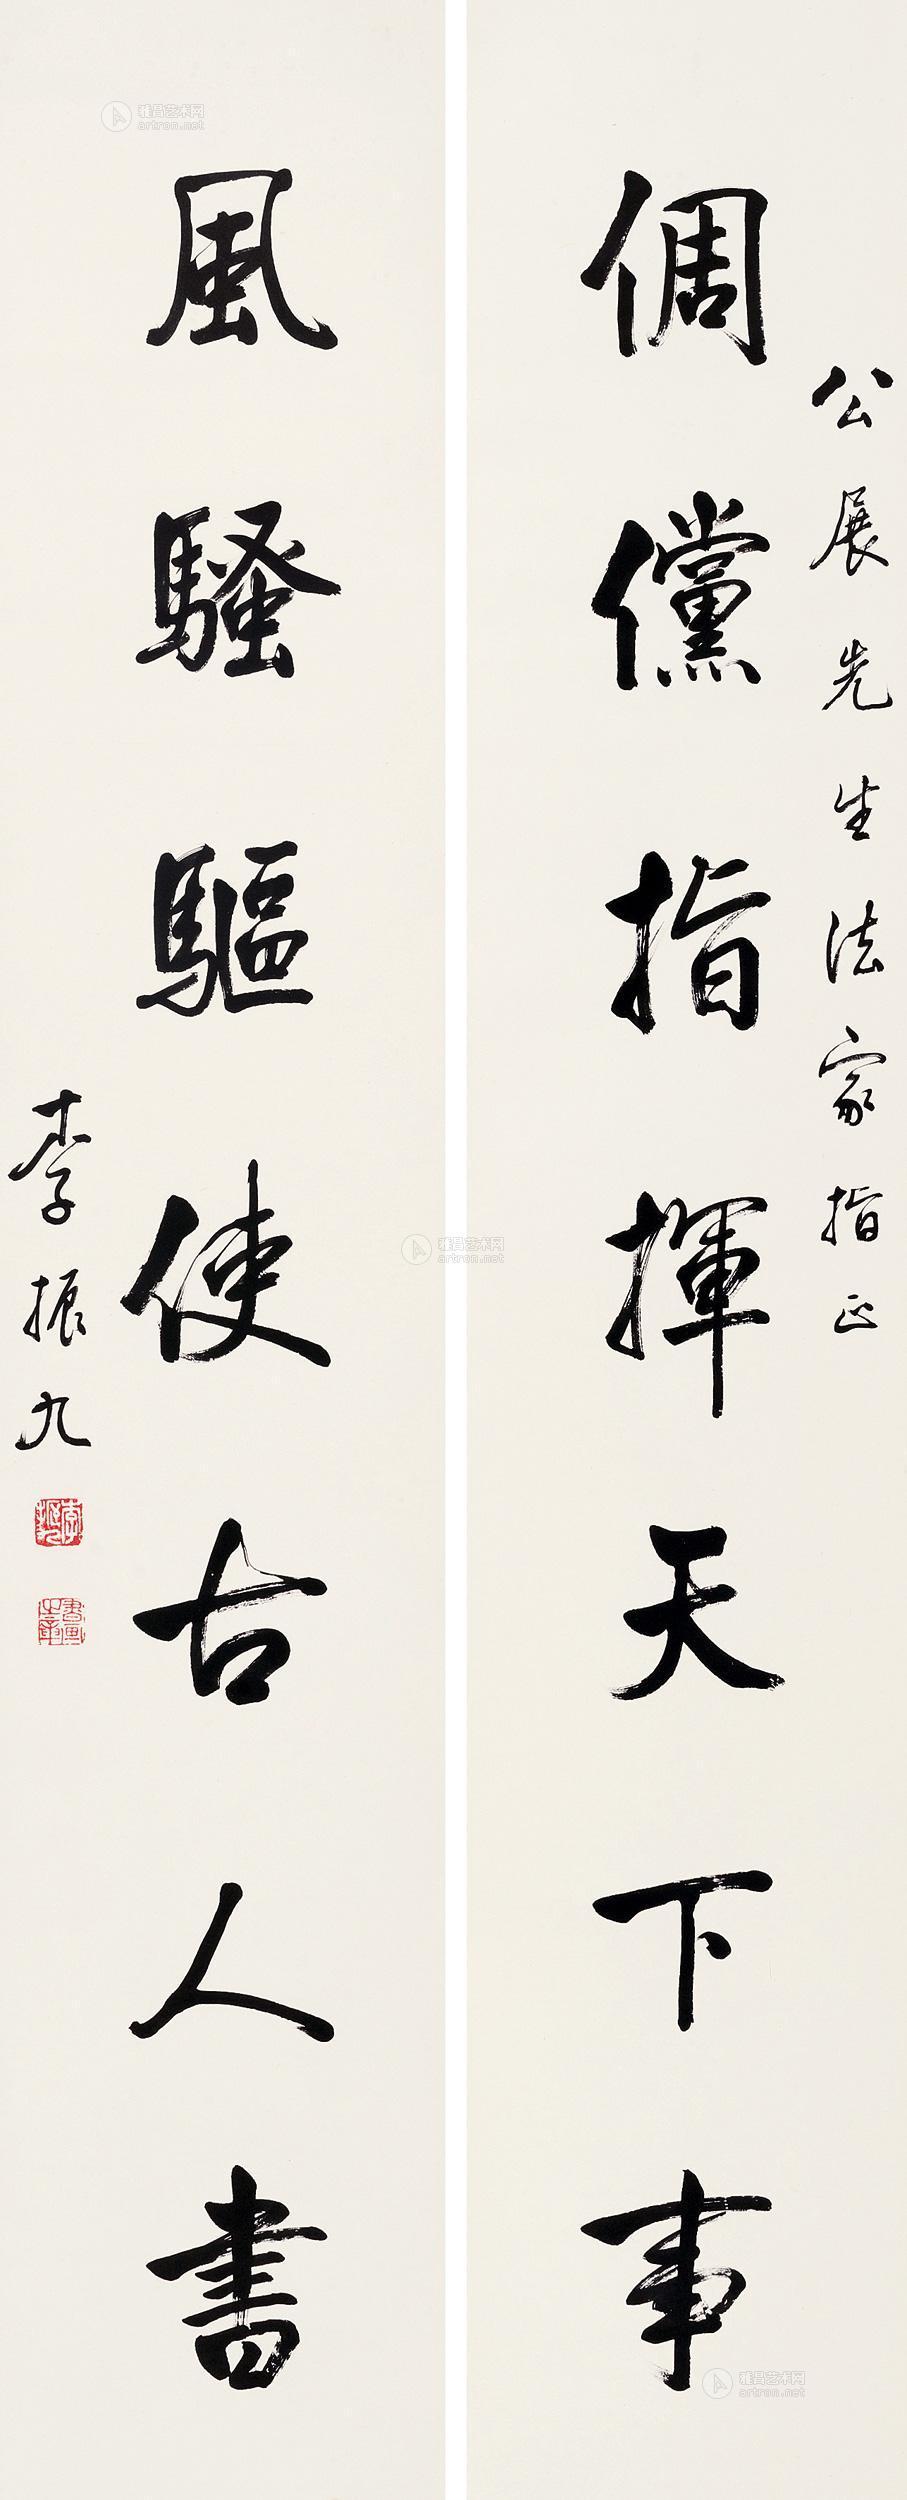 公展先生法家指正
倜儻指揮天下事
風騷驅使古人書
李振九
雅昌艺术网
artron.net
雅昌艺术网
artron.net
雅昌艺术网
artron.net